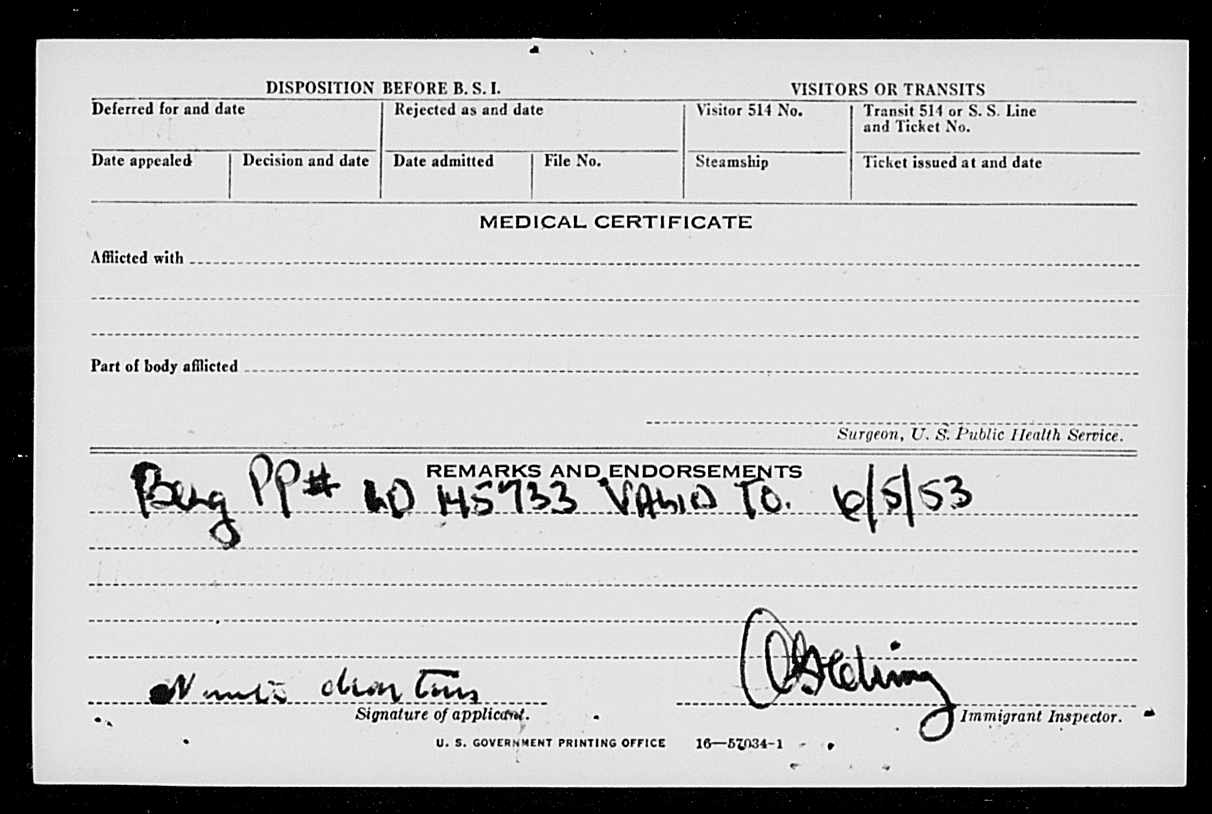 DISPOSITION BEFORE B. S. I.
VISITORS OR TRANSITS
Deferred for and date
Rejected as and date
Visitor 514 No.
Transit 514 or S. S. Line
and Ticket No.
Date appealed
Decision and date
Date admitted
File No.
Steamship
Ticket issued at and date
MEDICAL CERTIFICATE
Afflicted with
Part of body afflicted
Surgeon, U. S. Public Health Service.
REMARKS AND ENDORSEMENTS
PP# 145733 VALID TO. 6/5/53
Signature of applicant.
Immigrant Inspector.
U. S. GOVERNMENT PRINTING OFFICE 16—57034-1